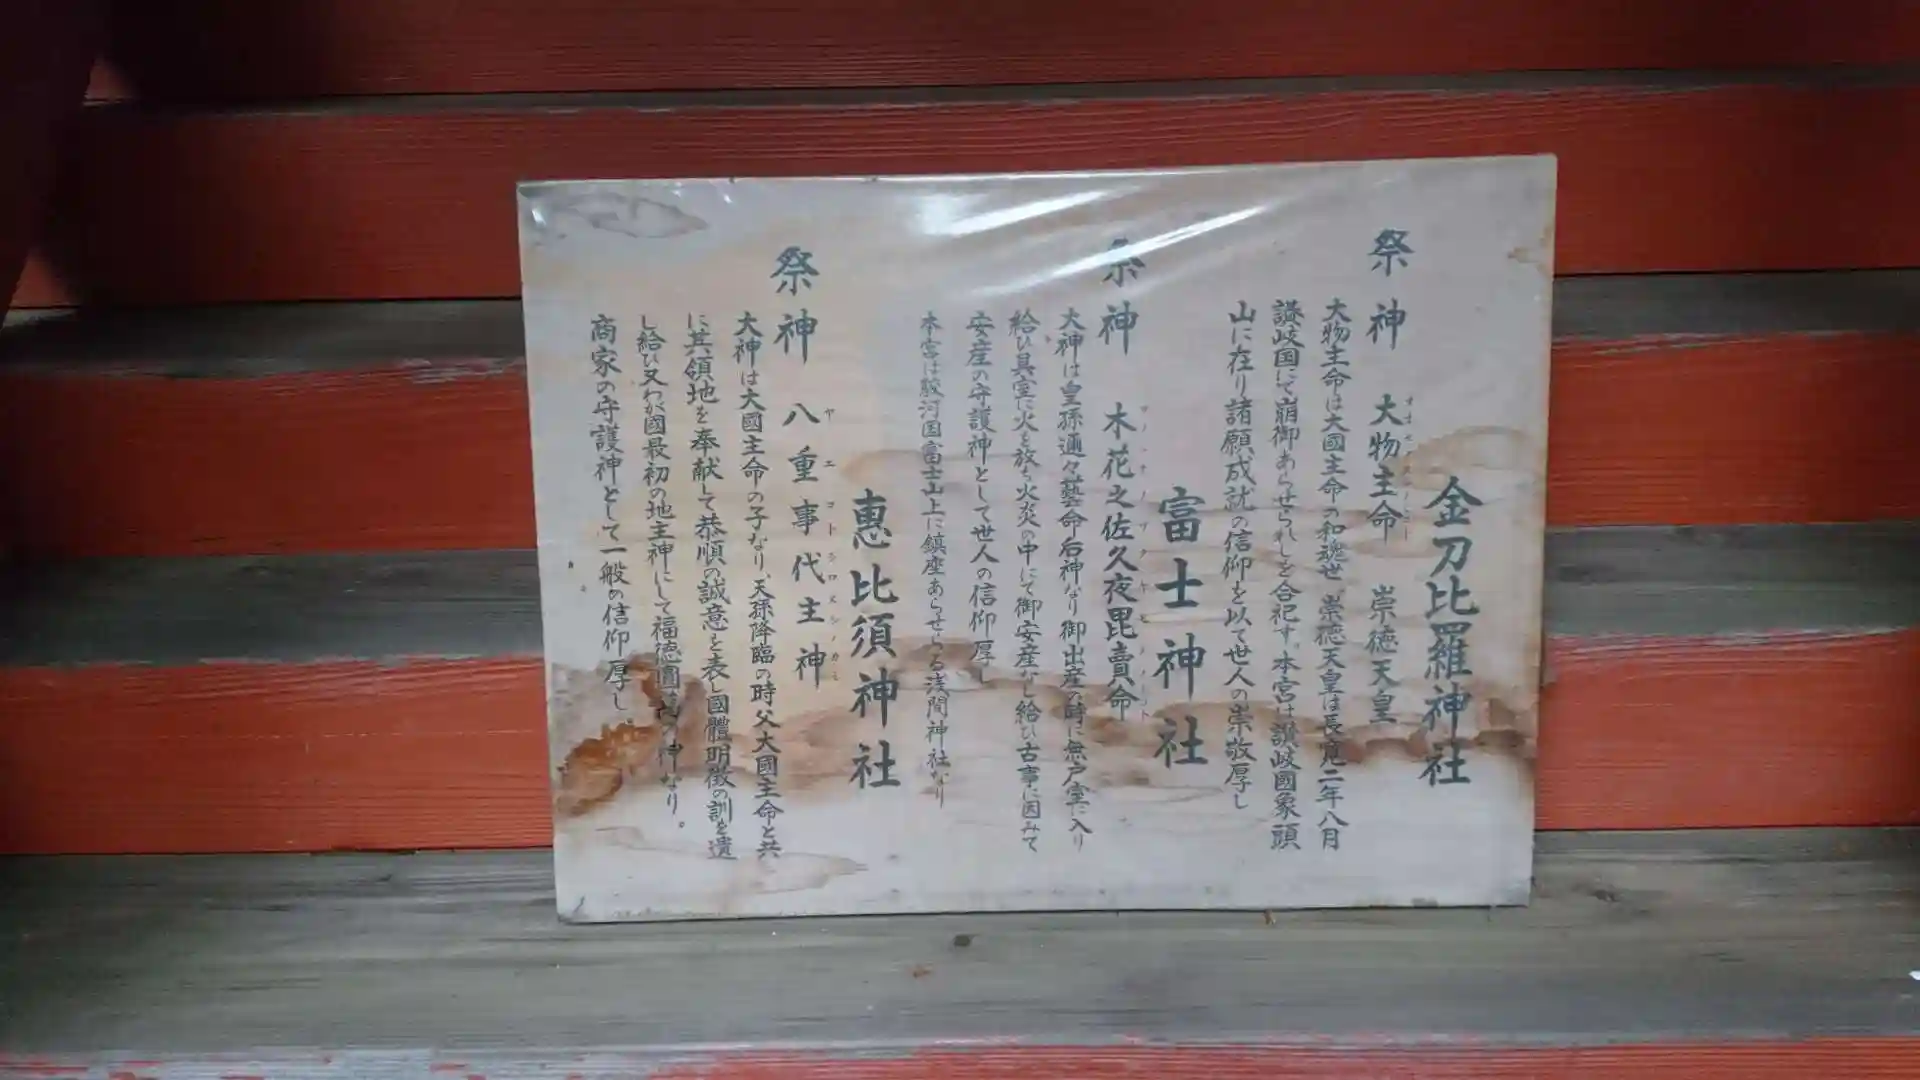 金刀比羅神社
祭神 大物主命 崇徳天皇
大物主命は大國主命の和魂也。崇徳天皇は長寛二年八月
讃岐国にて崩御あらせられしを合祀す。本宮は讃岐國象頭
山に在り諸願成就の信仰を以て世人の崇敬厚し
富士神社
祭神 木花之佐久夜毘賣命
コノハナノサクヤヒメノミコト
大神は皇孫邇々藝命后神なり御出産の時に無戸室に入り
給ひ其室に火を放ち火炎の中にて御安産なし給ひ古事に因みて
安産の守護神として世人の信仰厚し
本宮は駿河国富士山上に鎮座あらせらる浅間神社なり
惠比須神社
祭神 八重事代主神
ヤエコトシロヌシノカミ
大神は大國主命の子なり、天孫降臨の時父大國主命と共
に其領地を奉献して恭順の誠意を表し國體明徴の訓を遺
し給ひ又わが國最初の地主神にして福徳圓満の神なり。
商家の守護神として一般の信仰厚し